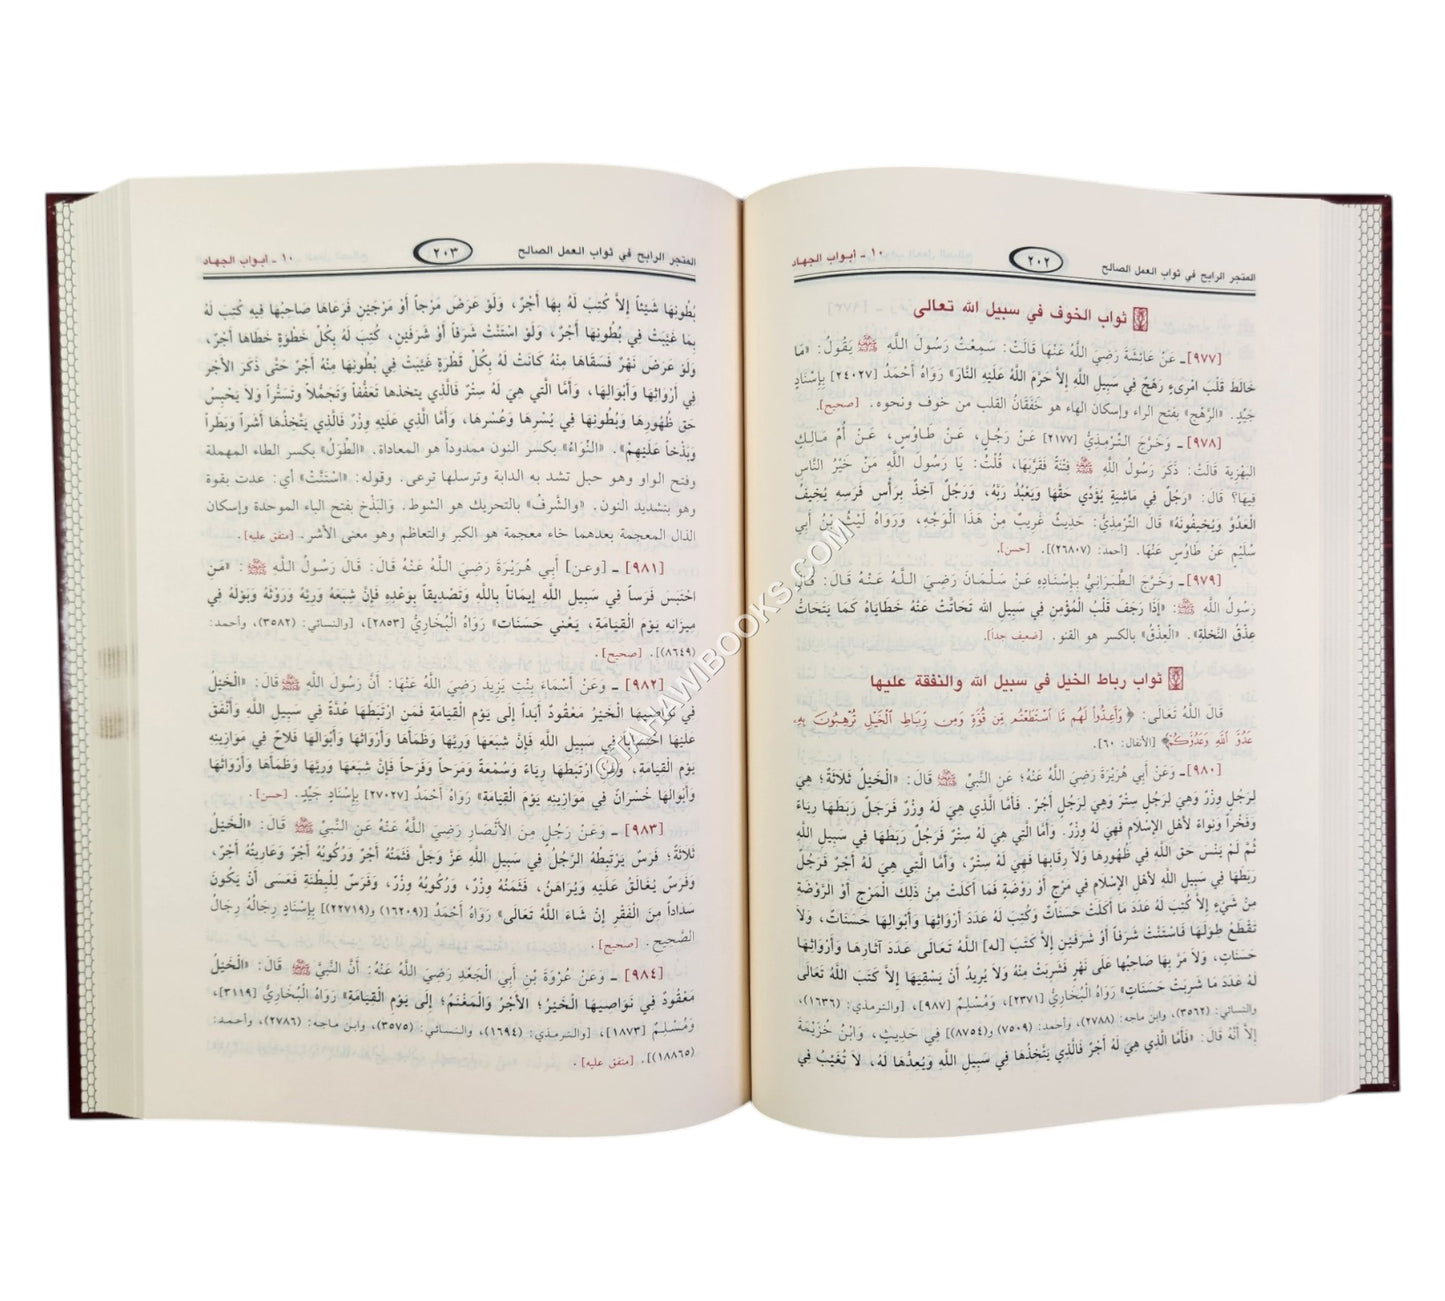 المتجر الرابح في ثواب العمل الصالح ٢٠٢ ١٠ - أبواب الجهاد
ثواب الخوف في سبيل الله تعالى
[٩٧٧] ـ عَنْ عَائِشَةَ رَضِيَ اللَّهُ عَنْهَا قَالَتْ: سَمِعْتُ رَسُولَ اللَّهِ ﷺ يَقُولُ: «مَا
خَالَطَ قَلْبَ امْرِىءٍ رَهَجٌ في سَبِيلِ اللَّهِ إلاَّ حَرَّمَ اللَّهُ عَلَيْهِ النَّارَ» رَوَاهُ أَحْمَدُ [٢٤٠٢٧] بِإِسْنَادٍ
جَيِّدٍ. «الرَّهْج» بفتح الراء وإسكان الهاء هو خَفَقَانُ القلب من خوف ونحوه. [صحيح].
[٩٧٨] ـ وَخَرَّجَ التِّرْمِذِيُّ [٢١٧٧] عَنْ رَجُلٍ، عَنْ طَاوُسٍ، عَنْ أُمِّ مَالِكٍ
البَهْزِية قَالَتْ: ذَكَرَ رَسُولُ اللَّهِ ﷺ فِتْنَةً فَقَرَّبَهَا، قُلْتُ: يَا رَسُولَ اللَّهِ مَنْ خَيْرُ النَّاسِ
فِيهَا؟ قَالَ: «رَجُلٌ فِي مَاشِيَةٍ يُؤَدِّي حَقَّهَا وَيَعْبُدُ رَبَّهُ، وَرَجُلٌ آخِذٌ بِرَأْسِ فَرَسِهِ يُخِيفُ
الْعَدُوَّ وَيُخِيفُونَهُ» قَالَ التِّرْمِذِيُّ: حَدِيثٌ غَرِيبٌ مِنْ هَذَا الْوَجْهِ، وَرَوَاهُ لَيْثُ بْنُ أَبِي
سُلَيْمٍ عَنْ طَاوُسٍ عَنْهَا. [أحمد: (٢٦٨٠٧)]. [حسن].
[٩٧٩] ـ وَخَرَّجَ الطَّبَرَانِيُّ بِإِسْنَادِهِ عَنْ سَلْمَانَ رَضِيَ اللَّهُ عَنْهُ قَالَ: قَالَ
رَسُولُ اللَّهِ ﷺ: «إِذَا رَجَفَ قَلْبُ الْمُؤْمِنِ في سَبِيلِ الله تَحَاتَّتْ عَنْهُ خَطَايَاهُ كَمَا يَتَحَاتُّ
عِذْقُ النَّخْلَةِ». «الْعِذْقُ» بالكسر هو القنو. [ضعيف جداً].
ثواب رباط الخيل في سبيل الله والنفقة عليها
قَالَ اللَّهُ تَعَالَى: ﴿وَأَعِدُّوا لَهُم مَّا اسْتَطَعْتُم مِّن قُوَّةٍ وَمِن رِّبَاطِ الْخَيْلِ تُرْهِبُونَ بِهِ
عَدُوَّ اللَّهِ وَعَدُوَّكُمْ﴾ [الأنفال: ٦٠].
[٩٨٠] ـ وَعَنْ أَبِي هُرَيْرَةَ رَضِيَ اللَّهُ عَنْهُ؛ عَنِ النَّبِيِّ ﷺ قَالَ: «الْخَيْلُ ثَلاَثَةٌ؛ هِيَ
لِرَجُلٍ وِزْرٌ وَهِيَ لِرَجُلٍ سِتْرٌ وَهِيَ لِرَجُلٍ أَجْرٌ. فَأَمَّا الَّذي هِيَ لَهُ وِزْرٌ فَرَجُلٌ رَبَطَهَا رِيَاءً
وَفَخْراً وَنِوَاءً لأَهْلِ الإِسْلاَمِ فَهِيَ لَهُ وِزْرٌ. وَأَمَّا الَّتِي هِيَ لَهُ سِتْرٌ فَرَجُلٌ رَبَطَهَا في سَبِيلِ اللَّهِ
ثُمَّ لَمْ يَنْسَ حَقَّ اللَّهِ فِي ظُهُورِهَا وَلاَ رِقَابِهَا فَهِيَ لَهُ سِتْرٌ، وَأَمَّا الَّتِي هِيَ لَهُ أَجْرٌ فَرَجُلٌ
رَبَطَهَا فِي سَبِيلِ اللَّهِ لأَهْلِ الإِسْلاَمِ فِي مَرْجٍ أَوْ رَوْضَةٍ فَمَا أَكَلَتْ مِنْ ذَلِكَ الْمَرْجِ أَوْ الرَّوْضَةِ
مِنْ شَيْءٍ إِلاَّ كُتِبَ لَهُ عَدَدَ مَا أَكَلَتْ حَسَنَاتٌ وَكُتِبَ لَهُ عَدَدَ أَرْوَاثِهَا وَأَبْوَالِهَا حَسَنَاتٌ، وَلاَ
تَقْطَعُ طِوَلَهَا فَاسْتَنَّتْ شَرَفاً أَوْ شَرَفَيْنِ إِلاَّ كَتَبَ [له] اللَّهُ تَعَالَى عَدَدَ آثَارِهَا وَأَرْوَاثِهَا
حَسَنَاتٍ، وَلاَ مَرَّ بِهَا صَاحِبُهَا عَلَى نَهْرٍ فَشَرِبَتْ مِنْهُ وَلاَ يُرِيدُ أَنْ يَسْقِيَهَا إِلاَّ كَتَبَ اللَّهُ تَعَالَى
لَهُ عَدَدَ مَا شَرِبَتْ حَسَنَاتٍ» رَوَاهُ الْبُخَارِيُّ [٢٣٧١]، وَمُسْلِمٌ [٩٨٧]، [والترمذي: (١٦٣٦)،
والنسائي: (٣٥٦٢)، وابن ماجه: (٢٧٨٨)، وأحمد: (٧٥٠٩) و(٨٧٥٤)] فِي حَدِيثٍ، وَابْنُ خُزَيْمَةَ
إِلاَّ أَنَّهُ قَالَ: «فَأَمَّا الَّذِي هِيَ لَهُ أَجْرٌ فَالَّذِي يَتَّخِذُهَا فِي سَبِيلِ اللَّهِ وَيُعِدُّهَا لَهُ، لاَ تُغَيِّبُ فِي
المتجر الرابح في ثواب العمل الصالح ٢٠٣ ١٠ - أبواب الجهاد
بُطُونِهَا شَيْئاً إِلاَّ كُتِبَ لَهُ بِهَا أَجْرٌ، وَلَوْ عَرَضَ مَرْجاً أَوْ مَرْجَيْنِ فَرَعَاهَا صَاحِبُهَا فِيهِ كُتِبَ لَهُ
بِمَا غَيَّبَتْ فِي بُطُونِهَا أَجْرٌ، وَلَوْ اسْتَنَّتْ شَرَفاً أَوْ شَرَفَيْنِ، كُتِبَ لَهُ بِكُلِّ خَطْوَةٍ خَطَاهَا أَجْرٌ،
وَلَوْ عَرَضَ نَهْرٌ فَسَقَاهَا مِنْهُ كَانَتْ لَهُ بِكُلِّ قَطْرَةٍ غَيَّبَتْ فِي بُطُونِهَا مِنْهُ أَجْرٌ حَتَّى ذَكَرَ الأَجْرَ
فِي أَرْوَاثِهَا وَأَبْوَالِهَا، وَأَمَّا الَّتي هِيَ لَهُ سِتْرٌ فَالَّذِي يتخذها تَعَفُّفاً وَتَجَمُّلاً وَتَسَتُّراً وَلاَ يَحْبِسُ
حَقَّ ظُهُورِهَا وَبُطُونِهَا فِي يُسْرِهَا وَعُسْرِهَا، وَأَمَّا الَّذي عَلَيْهِ وِزْرٌ فَالَّذِي يَتَّخِذُهَا أَشَراً وَبَطَراً
وَبَذْخاً عَلَيْهِمْ». «النُّوَاءُ» بكسر النون ممدوداً هو المعاداة. «الطِّوَلُ» بكسر الطاء المهملة
وفتح الواو وهو حبل تشد به الدابة وترسلها ترعى. وقوله: «اسْتَنَّتْ» أي: عدت بقوة
وهو بتشديد النون. «والشَّرفُ» بالتحريك هو الشوط. وَالبَذْخ بفتح الباء الموحدة وإسكان
الذال المعجمة بعدهما خاء معجمة هو الكبر والتعاظم وهو معنى الأشر. [متفق عليه].
[٩٨١] ـ [وعن] أَبِي هُرَيْرَةَ رَضِيَ اللَّهُ عَنْهُ قَالَ: قَالَ رَسُولُ اللَّهِ ﷺ: «مَنِ
احْتَبَسَ فَرَساً فِي سَبِيلِ اللَّهِ إِيمَاناً بِاللَّهِ وَتَصْدِيقاً بِوَعْدِهِ فَإِنَّ شِبَعَهُ وَرِيَّهُ وَرَوْثَهُ وَبَوْلَهُ فِي
مِيزَانِهِ يَوْمَ الْقِيَامَةِ، يَعْنِي حَسَنَاتٍ» رَوَاهُ الْبُخَارِيُّ [٢٨٥٣]، [والنسائي: (٣٥٨٢)، وأحمد:
(٨٦٤٩)]. [صحيح].
[٩٨٢] ـ وَعَنْ أَسْمَاءَ بِنْتِ يَزِيدَ رَضِيَ اللَّهُ عَنْهَا: أَنَّ رَسُولَ اللَّهِ ﷺ قَالَ: «الْخَيْلُ
في نَوَاصِيهَا الْخَيْرُ مَعْقُودٌ أَبَداً إِلَى يَوْمِ الْقِيَامَةِ فَمَنِ ارْتَبَطَهَا عُدَّةً فِي سَبِيلِ اللَّهِ وَأَنْفَقَ
عَلَيْهَا احْتِسَاباً فِي سَبِيلِ اللَّهِ فَإِنَّ شِبَعَهَا وَرِيَّهَا وَظَمَأَهَا وَأَرْوَاثَهَا وَأَبْوَالَهَا فَلاَحٌ في مَوَازِينِهِ
يَوْمَ الْقِيَامَةِ، وَمَنِ ارْتَبَطَهَا رِيَاءً وَسُمْعَةً وَمَرَحاً وَفَرَحاً فَإِنَّ شِبَعَهَا وَرِيَّهَا وَظَمَأَهَا وَأَرْوَاثَهَا
وَأَبْوَالَهَا خُسْرَانٌ فِي مَوَازِينِهِ يَوْمَ الْقِيَامَةِ» رَوَاهُ أَحْمَدُ [٢٧٠٢٧] بِإِسْنَادٍ جَيِّدٍ. [حسن].
[٩٨٣] ـ وَعَنْ رَجُلٍ مِنَ الأَنْصَارِ رَضِيَ اللَّهُ عَنْهُ عَنِ النَّبِيِّ ﷺ قَالَ: «الْخَيْلُ
ثَلاَثَةٌ؛ فَرَسٌ يَرْتَبِطُهُ الرَّجُلُ فِي سَبِيلِ اللَّهِ عَزَّ وَجَلَّ فَثَمَنُهُ أَجْرٌ وَرُكُوبُهُ أَجْرٌ وَعَارِيَتُهُ أَجْرٌ،
وَفَرَسٌ يُغَالَقُ عَلَيْهِ وَيُرَاهَنُ، فَثَمَنُهُ وِزْرٌ، وَرُكُوبُهُ وِزْرٌ، وَفَرَسٌ لِلْبِطْنَةِ فَعَسَى أَنْ يَكُونَ
سَدَاداً مِنَ الْفَقْرِ إِنْ شَاءَ اللَّهُ تَعَالَى» رَوَاهُ أَحْمَدُ [(١٦٢٠٩) و(٢٢٧١٩)] بِإِسْنَادٍ رِجَالُهُ رِجَالُ
الصَّحِيحِ. [صحيح].
[٩٨٤] ـ وَعَنْ عُرْوَةَ بْنِ أَبِي الْجَعْدِ رَضِيَ اللَّهُ عَنْهُ: أَنَّ النَّبِيَّ ﷺ قَالَ: «الْخَيْلُ
مَعْقُودٌ فِي نَوَاصِيهَا الْخَيْرُ؛ الأَجْرُ وَالْمَغْنَمُ؛ إِلَى يَوْمِ الْقِيَامَةِ» رَوَاهُ الْبُخَارِيُّ [٣١١٩]،
وَمُسْلِمٌ [١٨٧٣]، [والترمذي: (١٦٩٤)، والنسائي: (٣٥٧٥)، وابن ماجه: (٢٧٨٦)، وأحمد:
(١٨٨٦٥)]. [متفق عليه].
©TAHAWIBOOKS.COM